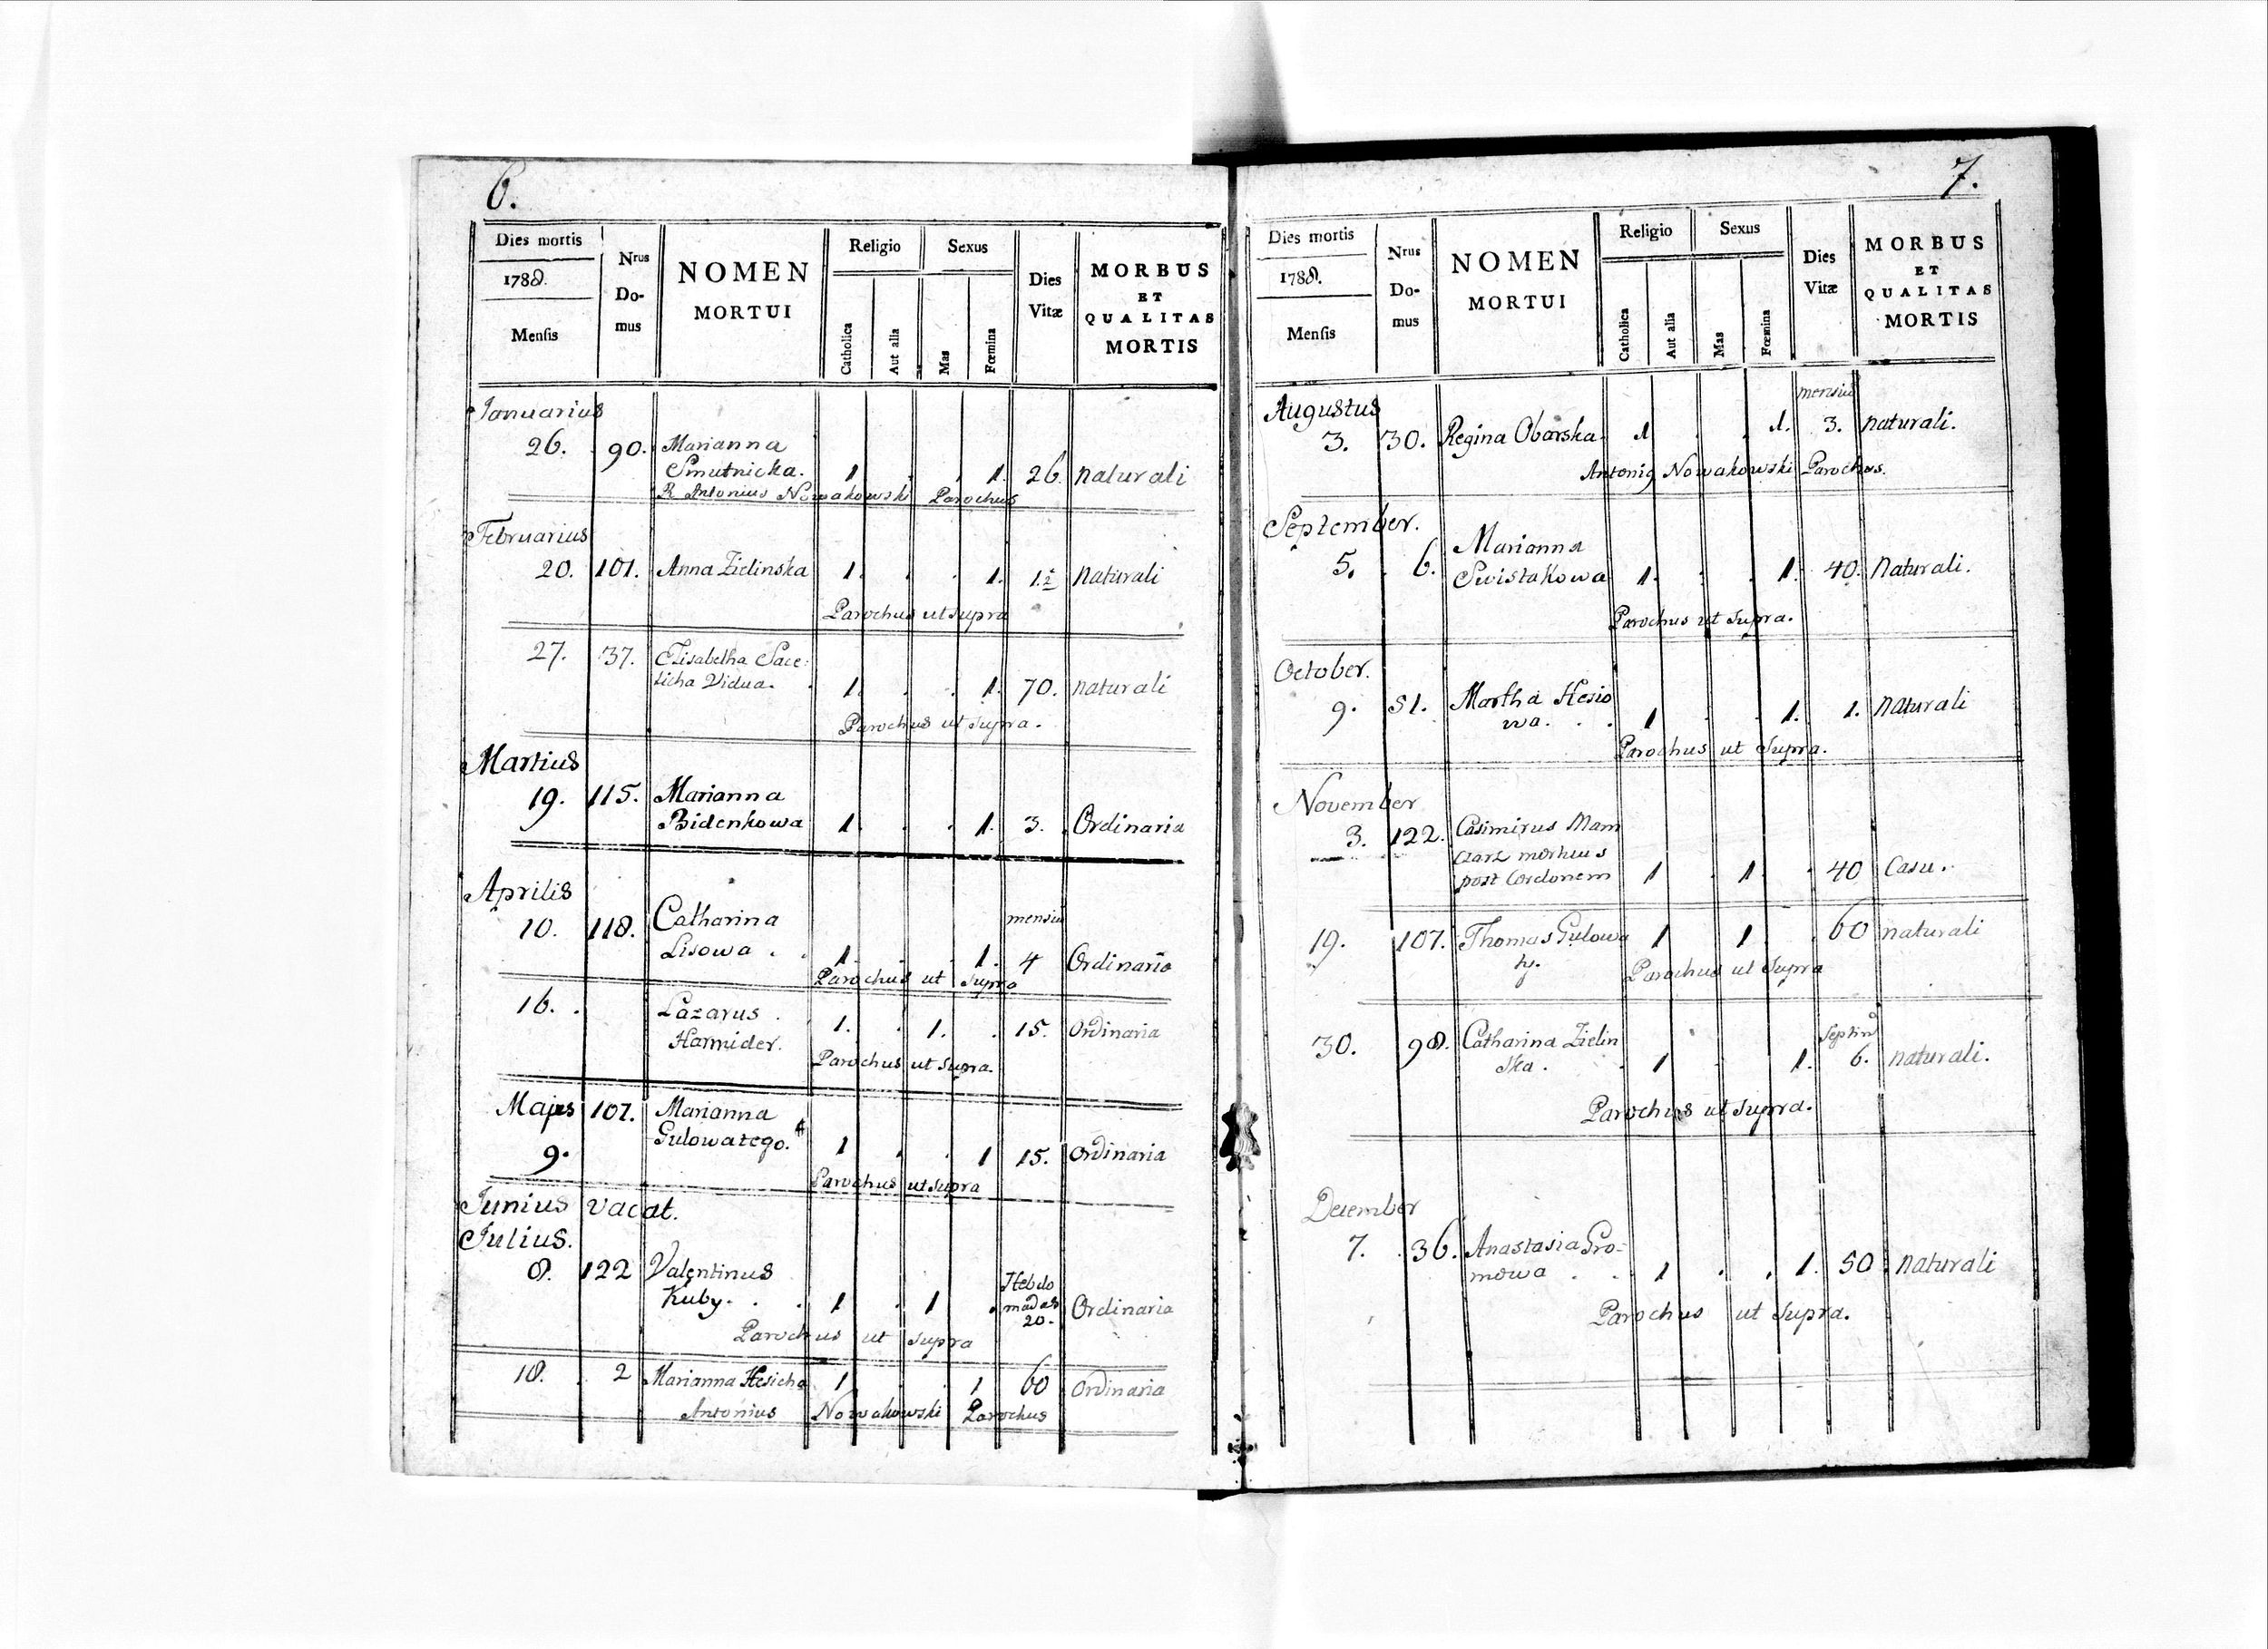 6.
Dies mortis
1788.
Mensis
Nrus
Do-
mus
NOMEN
MORTUI
Religio
Catholica
Aut alia
Sexus
Mas
Fœmina
Dies
Vitæ
MORBUS
ET
QUALITAS
MORTIS
Januarius
26. 90. Marianna
Smutnicka. 1 . . 1. 26. naturali
R Antonius Nowakowski Parochus
Februarius
20. 101. Anna Zielinska 1. . . 1. 1.½ naturali
Parochus ut supra
27. 37. Elisabetha
Vidua. 1. . . 1. 70. naturali
Parochus ut supra.
Martius
19. 115. Marianna
Bidenkowa 1. . . 1. 3. Ordinaria
Aprilis
10. 118. Catharina mensiu
Lisowa . . 1. . . 1. 4 Ordinaria
Parochus ut supra
16. . Lazarus .
Harmider. 1. . 1. . 15. Ordinaria
Parochus ut supra.
Majus 107. Marianna
9. Gulowatego. 1 . . 1 15. Ordinaria
Parochus ut supra
Junius vacat.
Julius.
8. 122 Valentinus Hebdo
Kuby. . . 1 . 1 . madas Ordinaria
20.
Parochus ut supra
18. 2 Marianna Hesicha 1 . . 1 60 Ordinaria
Antonius Nowakowski Parochus
7.
Dies mortis
1788.
Mensis
Nrus
Do-
mus
NOMEN
MORTUI
Religio
Catholica
Aut alia
Sexus
Mas
Fœmina
Dies
Vitæ
MORBUS
ET
QUALITAS
MORTIS
Augustus mensiu
3. 30. Regina Obarska. 1 . . 1. 3. naturali.
Antonig Nowakowski Parochus.
September.
5. 6. Marianna
Swistakowa 1. . . 1. 40. naturali.
Parochus ut supra.
October.
9. 51. Martha Hesio
wa. . . 1 . . 1. 1. naturali
Parochus ut supra.
November
3. 122. Casimirus Mam
czarz
post Cordonem 1 . 1. . 40 Casu.
19. 107. Thomas Gulowa 1 1 . 60 naturali
ty.
Parochus ut supra
30. 98. Catharina Zielin
ska . . 1 . 1. 6. naturali.
Parochus ut supra.
December
7. 36. Anastasia Gro-
mowa . . 1 . . 1. 50. naturali
Parochus ut supra.